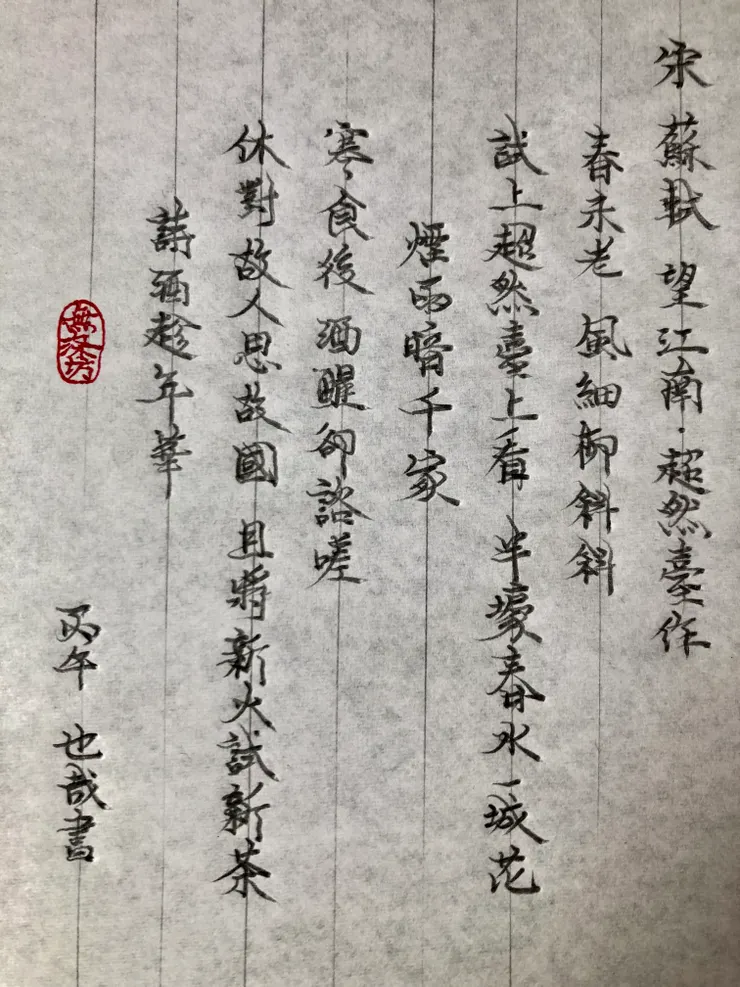 宋 蘇軾 望江南·超然臺作
春未老 風細柳斜斜
試上超然臺上看 半壕春水一城花
煙雨暗千家
寒食後 酒醒卻諮嗟
休對故人思故國 且將新火試新茶
詩酒趁年華
丙午 也哉書